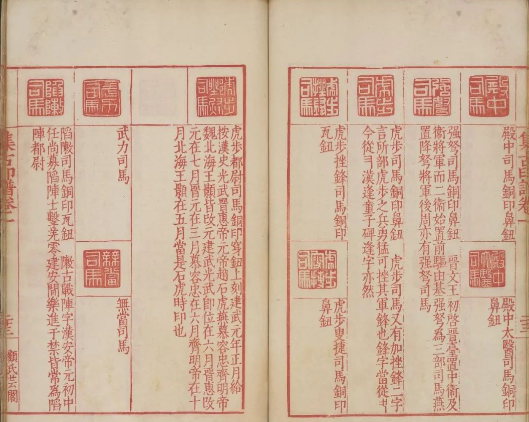 殿中司馬
殿中司馬銅印鼻鈕
殿中太醫司馬銅印
鼻鈕
强弩司馬銅印鼻鈕 晉文王初啓晉臺置中衛及
衛將軍而二衛始置前驅由基强弩為三部司馬燕
置降弩將軍後周亦有强弩司馬
虎步司馬銅印鼻鈕 虎步司馬又有加挫鋒二字
言所部虎步之兵勇猛可挫其軍鋒也鋒字當從丰
今從彐漢逢童子碑逢字亦然
虎步挫鋒司馬銅印
瓦鈕
虎步叟捷司馬銅印
鼻鈕
虎步都尉司馬銅印穿鈕上刻建武元年正月給
按漢史光武晋惠帝元帝趙石虎燕慕容忠齊明帝
魏北海王顥皆改元建武光武即位在六月晋惠改
元在七月晋元在三月慕容忠在六月齊明帝在十
月北海王顥在五月當是石虎時印也
武力司馬
無當司馬
陷陳司馬銅印瓦鈕 陳古戰陣字漢安帝元初中
任尚募陷陣士擊羌零建安間樂進于禁皆常為陷
陳都尉
集古印譜卷一
顧氏芸閣